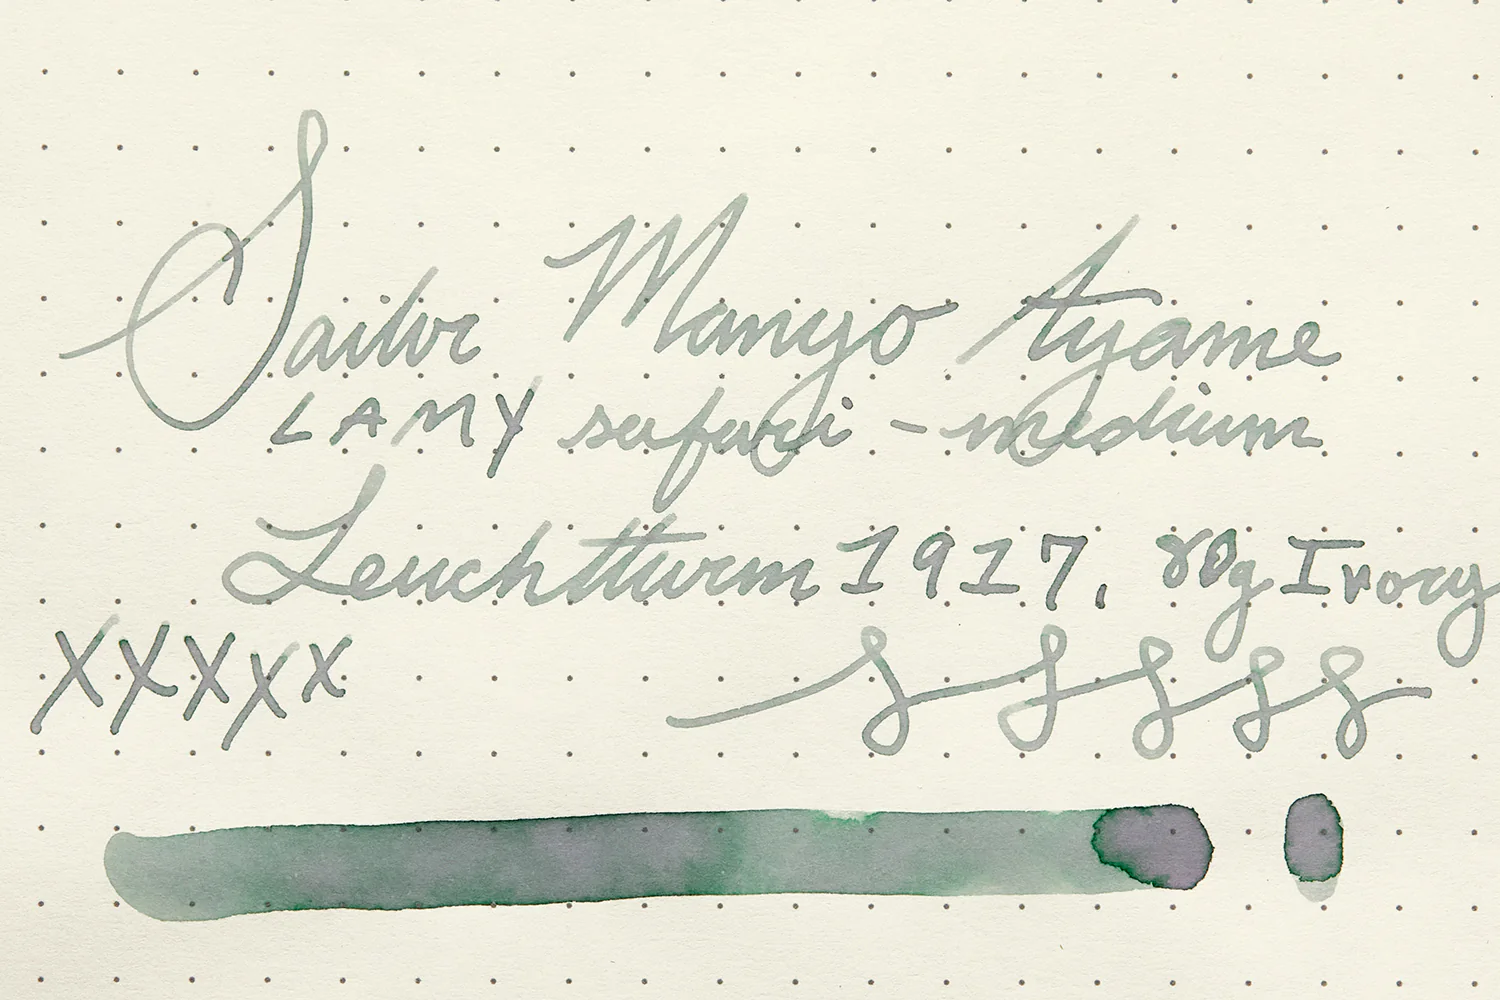 Sailor Manyo Ayame
LAMY safari - medium
Leuchtturm 1917, 80g Ivory
XXXXX